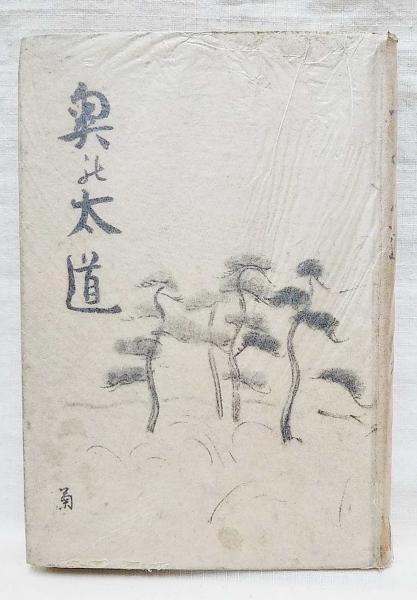 奥の太道
菊